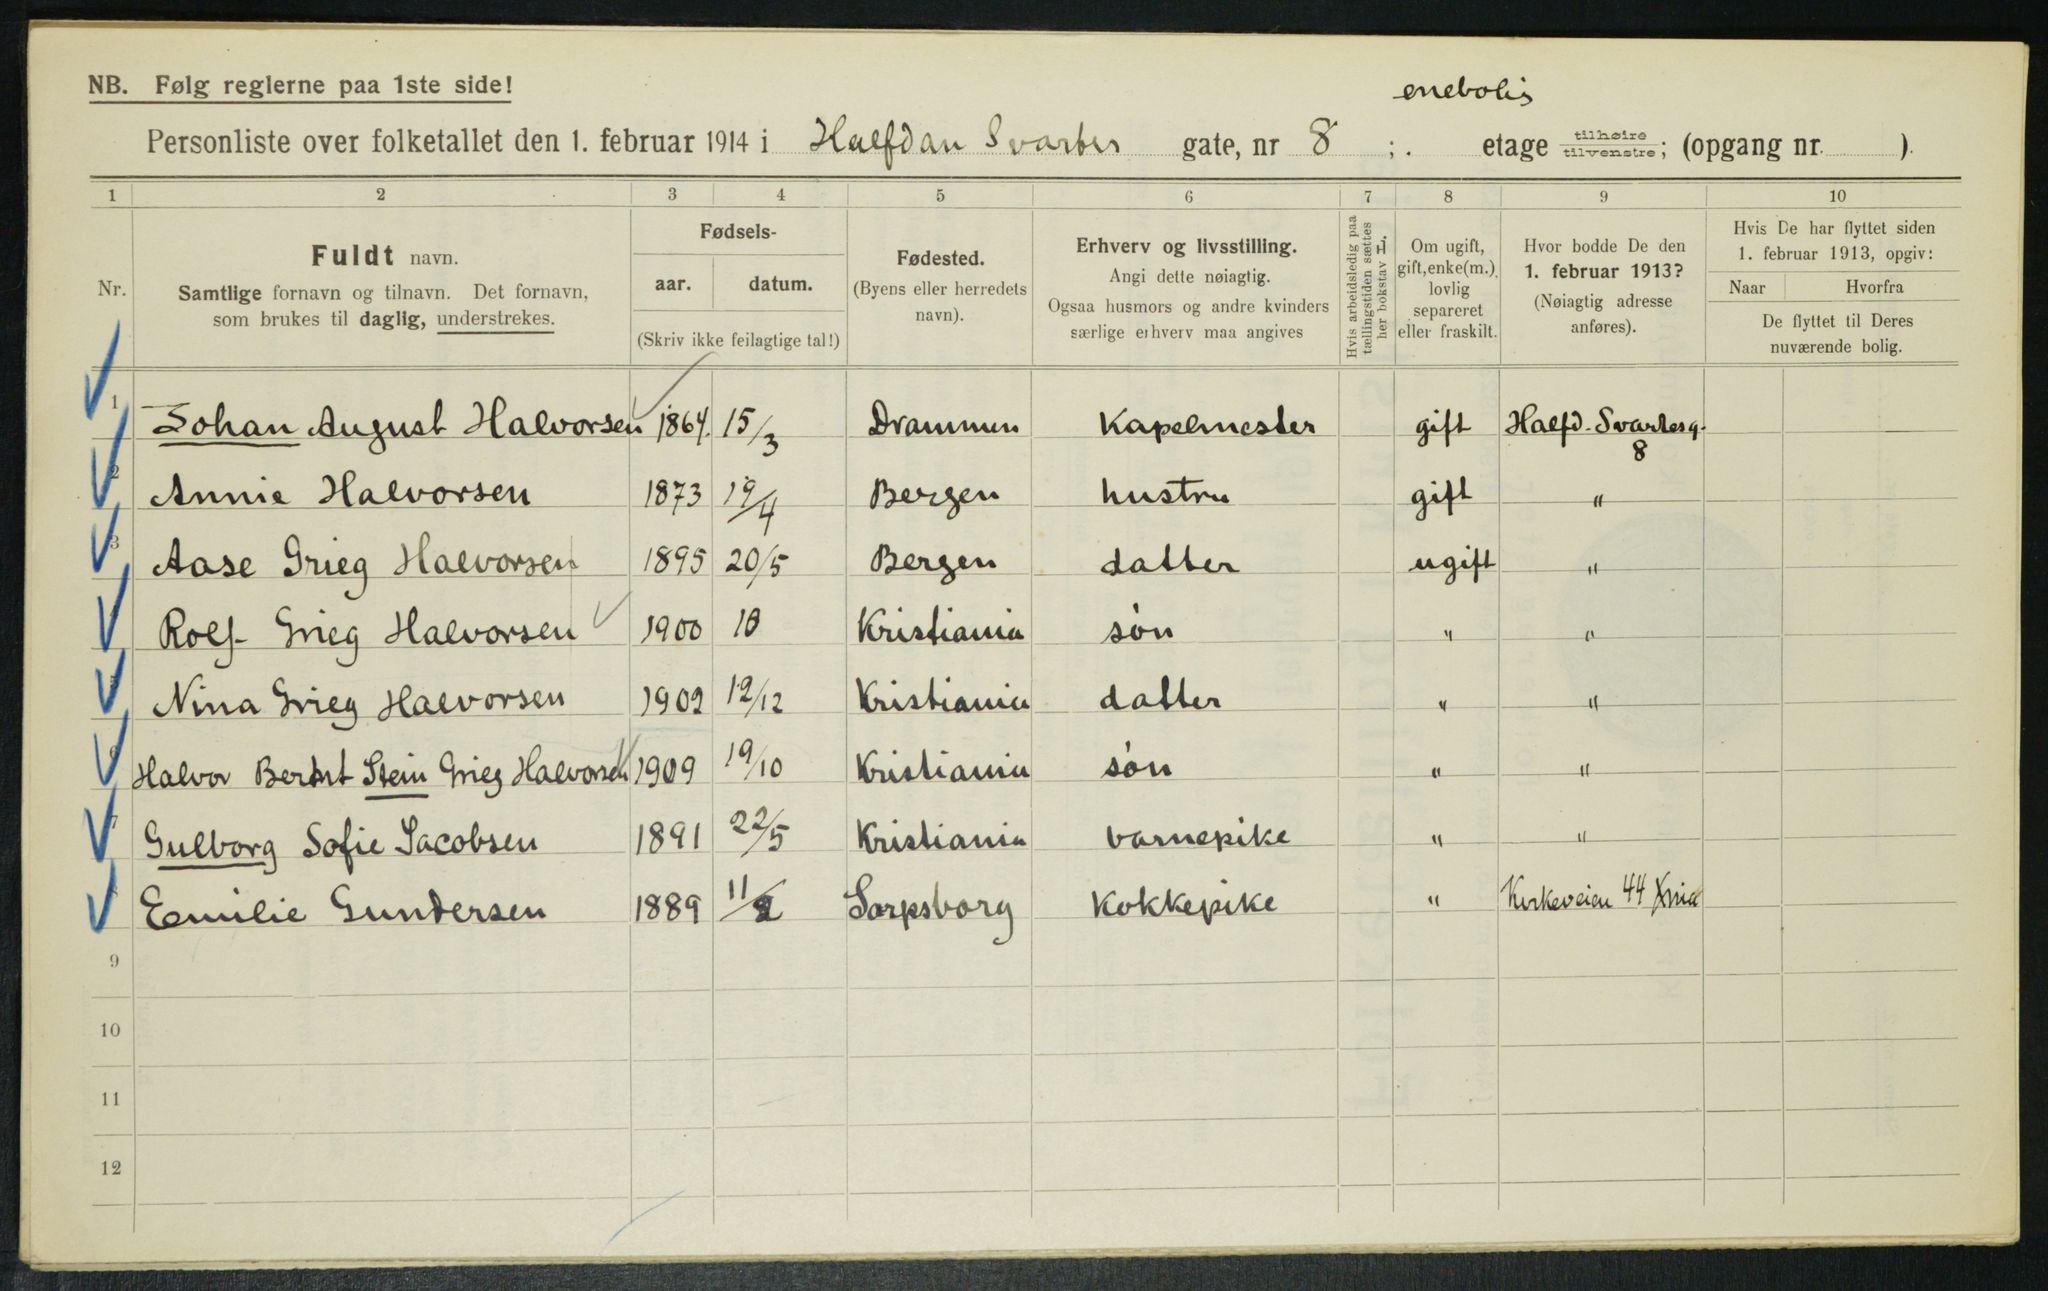 NB. Følg reglerne paa 1ste side!
enebolig
Personliste over folketallet den 1. februar 1914 i Halfdan Svartes gate, nr 8 ; . etage tilhøire tilvenstre; (opgang nr. ).
1 2 3 4 5 6 7 8 9 10
Nr.
Fuldt navn.
Samtlige fornavn og tilnavn. Det fornavn,
som brukes til daglig, understrekes.
Fødsels-
aar. datum.
(Skriv ikke feilagtige tal!)
Fødested.
(Byens eller herredets
navn).
Erhverv og livsstilling.
Angi dette nøiagtig.
Ogsaa husmors og andre kvinders
særlige erhverv maa angives
Hvis arbeidsledig paa
tællingstiden sættes
her bokstav L.
Om ugift,
gift, enke(m.),
lovlig
separeret
eller fraskilt.
Hvor bodde De den
1. februar 1913?
(Nøiagtig adresse
anføres).
Hvis De har flyttet siden
1. februar 1913, opgiv:
Naar Hvorfra
De flyttet til Deres
nuværende bolig.
1 Johan August Halvorsen 1864. 15/3 Drammen Kapelmester gift Halfd. Svartesg. 8
2 Annie Halvorsen 1873 19/4 Bergen hustru gift "
3 Aase Grieg Halvorsen 1895 20/5 Bergen datter ugift "
Rolf Grieg Halvorsen 1900 Kristiania søn " "
5 Nina Grieg Halvorsen 1902 12/12 Kristiania datter " "
6 Halvor Bernt Stein Grieg Halvorsen 1909 19/10 Kristiania søn " "
7 Gulborg Sofie Jacobsen 1891 22/5 Kristiania barnepike " "
8 Emilie Gundersen 1889 11/2 Sarpsborg Kokkepike " Kirkeveien 44 Xnia
9
10
11
12